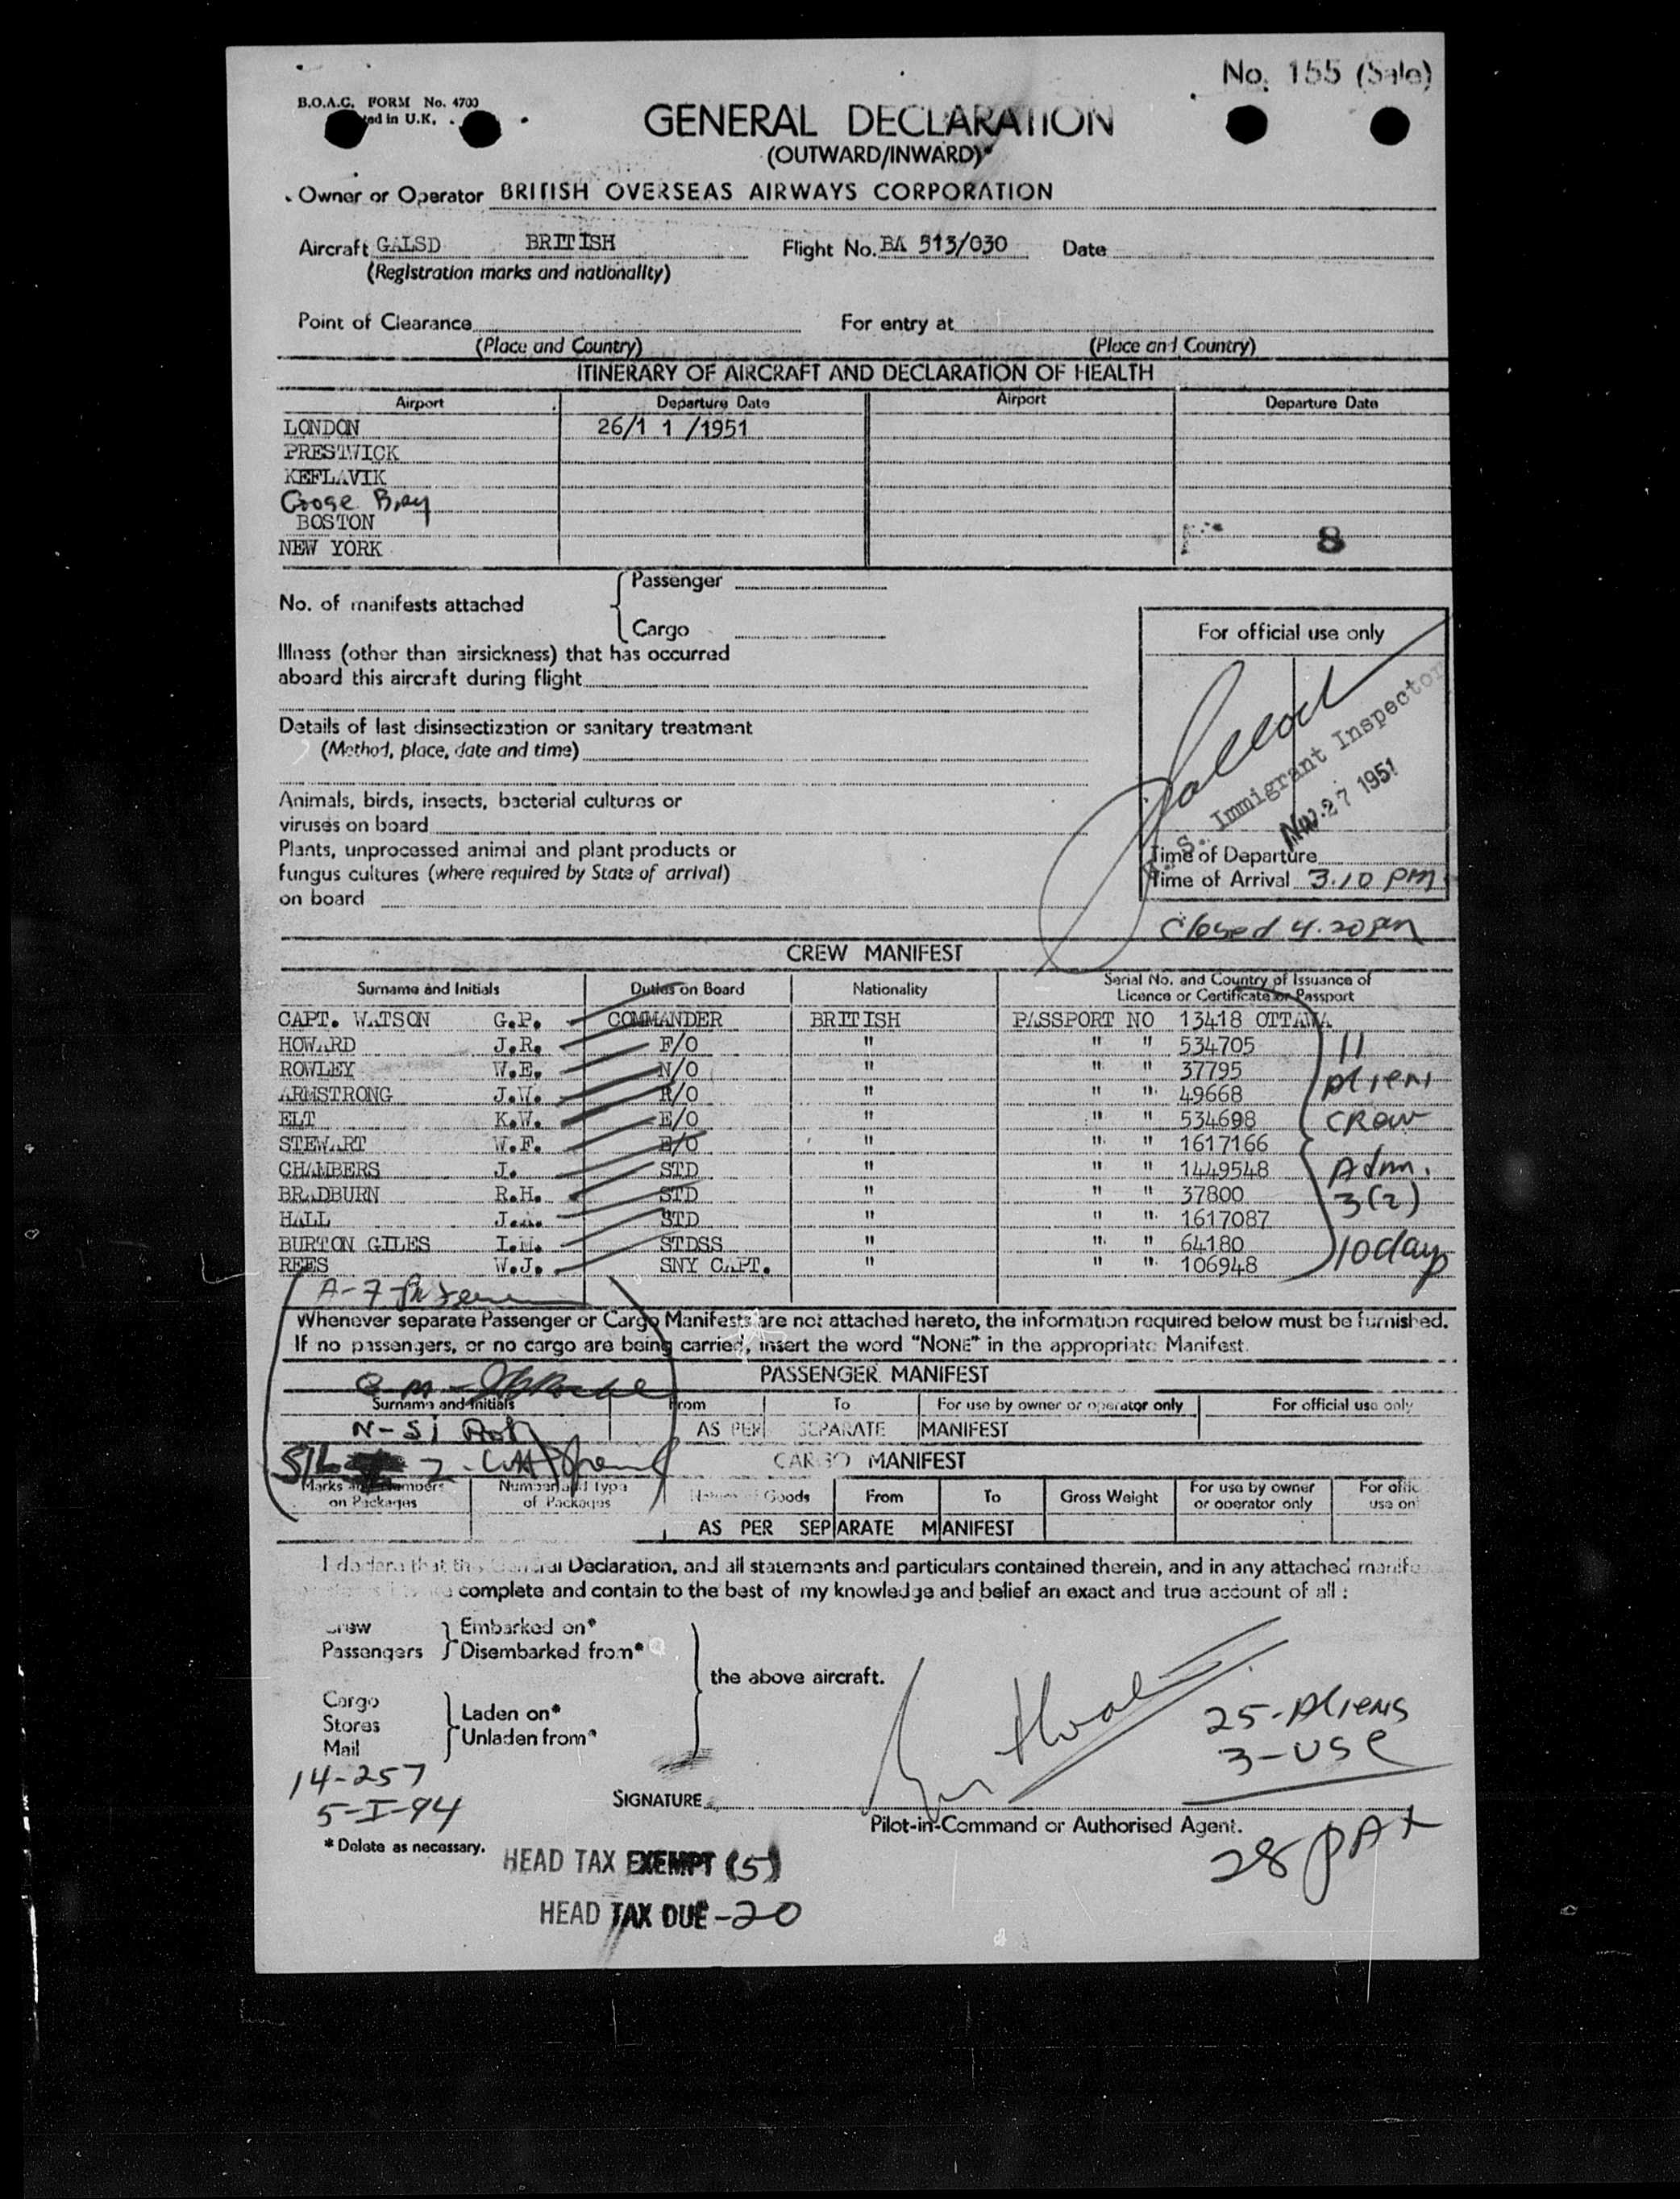 No. 155 (Sale)
B.O.A.C. FORM No. 4700
ted in U.K.
GENERAL DECLARATION
(OUTWARD/INWARD)*
Owner or Operator BRITISH OVERSEAS AIRWAYS CORPORATION
Aircraft GALSD BRITISH Flight No. BA 513/030 Date
(Registration marks and nationality)
Point of Clearance For entry at
(Place and Country) (Place and Country)
ITINERARY OF AIRCRAFT AND DECLARATION OF HEALTH
Airport Departure Date Airport Departure Date
LONDON 26/1 1 /1951
PRESTWICK
KEFLAVIK
Goose Bay
BOSTON
NEW YORK 8
No. of manifests attached
Passenger
Cargo
For official use only
Illness (other than airsickness) that has occurred
aboard this aircraft during flight
Details of last disinsectization or sanitary treatment
(Method, place, date and time)
Animals, birds, insects, bacterial cultures or
viruses on board
Plants, unprocessed animal and plant products or
fungus cultures (where required by State of arrival)
on board
U.S. Immigrant Inspector
NOV. 27 1951
Time of Departure
Time of Arrival 3.10 PM
Closed 4.20 pm
CREW MANIFEST
Surname and Initials Duties on Board Nationality Serial No. and Country of Issuance of
Licence or Certificate or Passport
CAPT. WATSON G.P. COMMANDER BRITISH PASSPORT NO 13418 OTTAWA
HOWARD J.R. F/O " " " 534705
ROWLEY W.E. N/O " " " 37795
ARMSTRONG J.W. R/O " " " 49668
ELT K.W. E/O " " " 534698
STEWART W.F. E/O " " " 1617166
CHAMBERS J. STD " " " 1449548
BRADBURN R.H. STD " " " 37800
HALL J.A. STD " " " 1617087
BURTON GILES I.M. STDSS " " " 64180
REES W.J. SNY CAPT. " " " 106948
11
Aliens
Crew
Adm.
3(2)
10 days
Whenever separate Passenger or Cargo Manifests are not attached hereto, the information required below must be furnished.
If no passengers, or no cargo are being carried, insert the word "NONE" in the appropriate Manifest.
PASSENGER MANIFEST
Surname and Initials From To For use by owner or operator only For official use only
AS PER SEPARATE MANIFEST
CARGO MANIFEST
Marks and Numbers on Packages Number and Type of Packages Nature of Goods From To Gross Weight For use by owner or operator only
AS PER SEPARATE MANIFEST
I declare that this General Declaration, and all statements and particulars contained therein, and in any attached
complete and contain to the best of my knowledge and belief an exact and true account of all :
Crew
Passengers
Embarked on*
Disembarked from*
the above aircraft.
Cargo
Stores
Mail
Laden on*
Unladen from*
25-Aliens
3-USC
28 PAX
14-257
5-I-94
SIGNATURE
Pilot-in-Command or Authorised Agent.
* Delete as necessary.
HEAD TAX EXEMPT (5)
HEAD TAX DUE -20